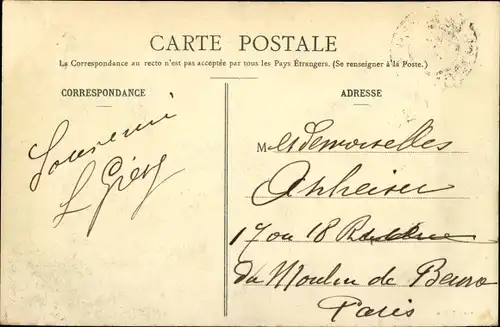 CARTE POSTALE
La Correspondance au recto n'est pas acceptée par tous les Pays Étrangers. (Se renseigner à la Poste.)
CORRESPONDANCE
ADRESSE
Souvenir
Mesdemoiselles
17 ou 18
du Moulin de Beure
Paris